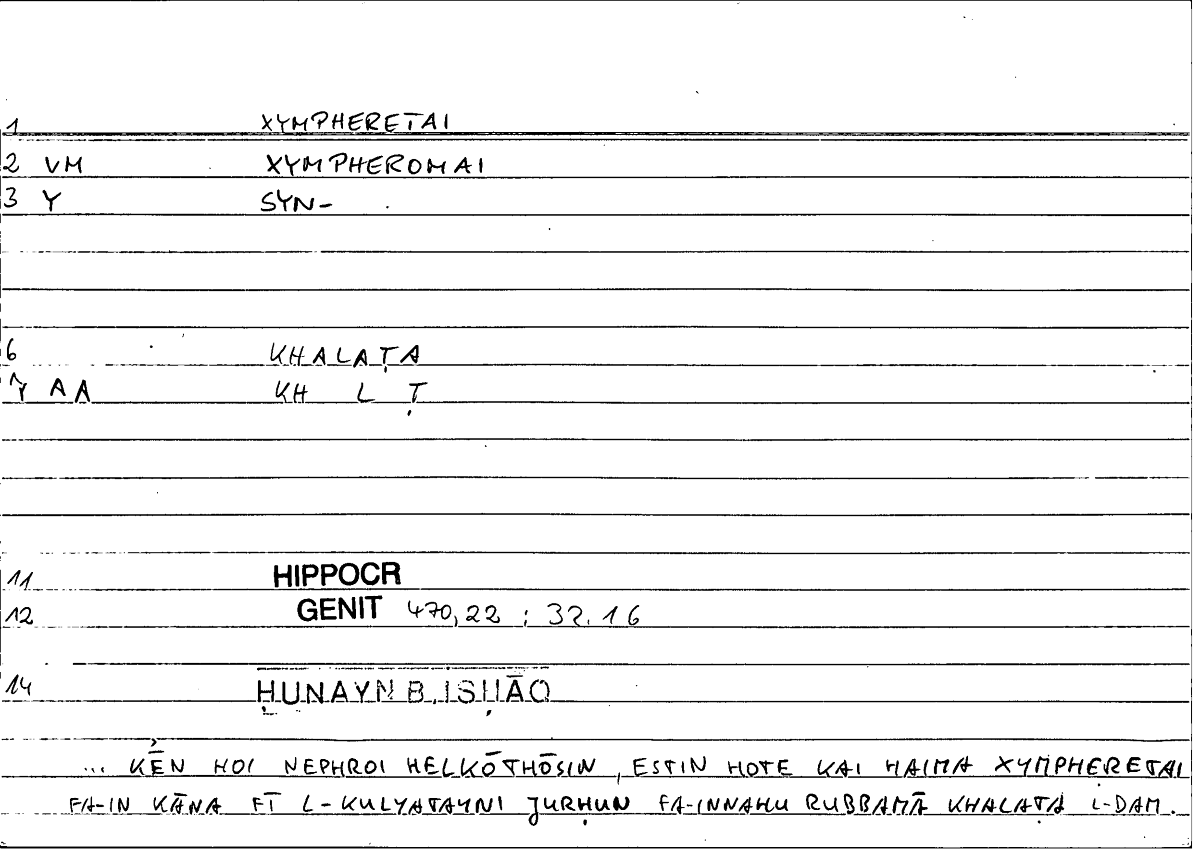 1 XYMPHERETAI
2 VM XYMPHEROMAI
3 Y SYN-
6 KHALAṬA
7 AA KH L Ṭ
11 HIPPOCR
12 GENIT 470,22 ; 32.16
14 ḤUNAYN B. ISḤĀQ
... KḖN HOI NEPHROI HELKŌTHŌSIN, ESTIN HOTE KAI HAIMA XYMPHERETAI
FA-IN KĀNA FĪ L-KULYATAYNI JURḤUN FA-INNAHU RUBBAMĀ KHALAṬA L-DAM.